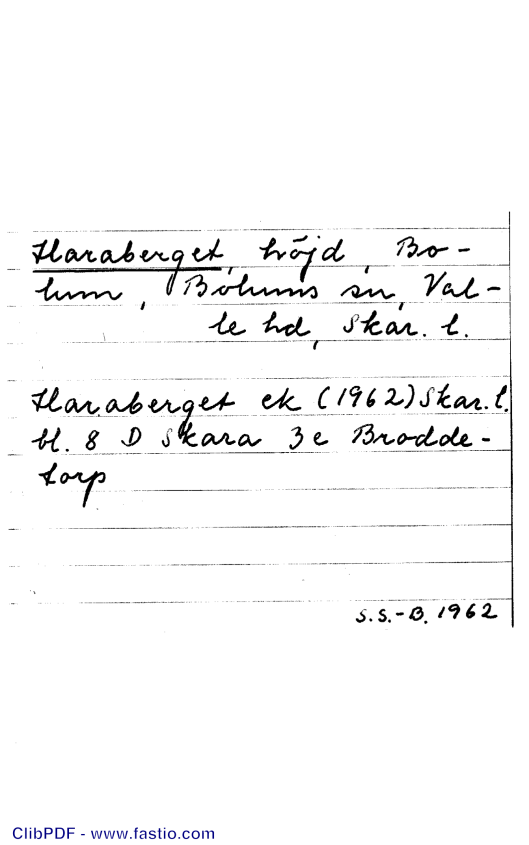 Haraberget, höjd, Bo-
lum, Bolums sn, Val-
le hd, Skar. l.
Haraberget ek (1962) Skar. l.
bl. 8 D Skara 3e Brodde-
torp
S.S.-B. 1962
ClibPDF - www.fastio.com